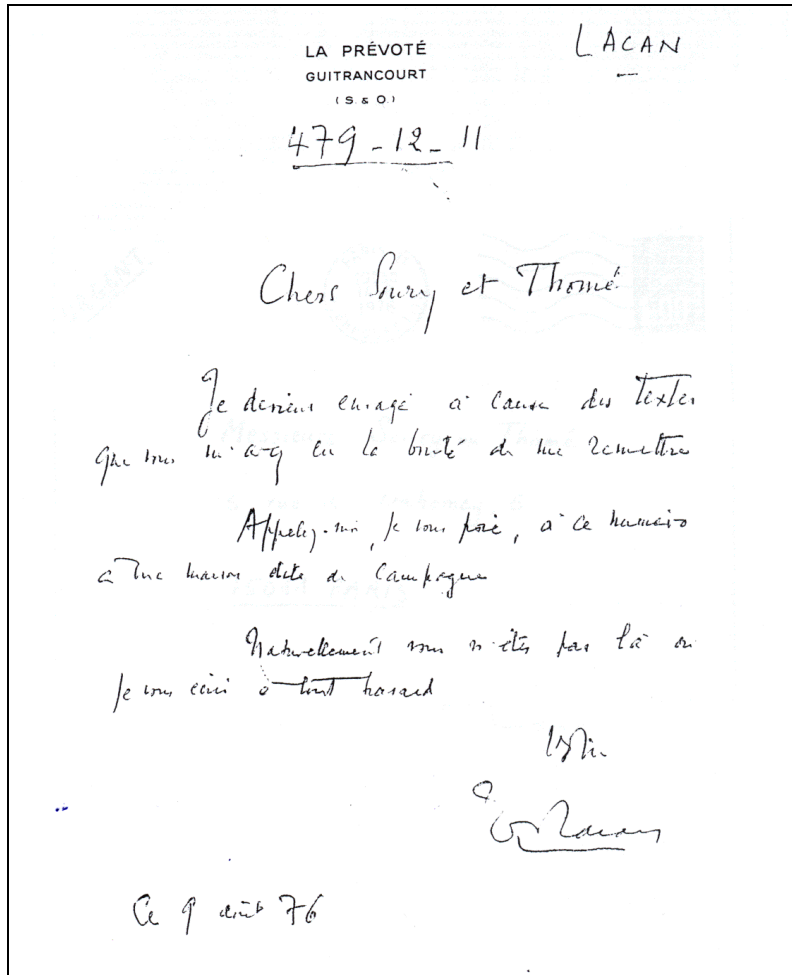 LACAN
LA PRÉVOTÉ
GUITRANCOURT
(S. & O.)
479-12-11
Chers Soury et Thomé
Je deviens enragé à cause des textes
que vous m'avez eu la bonté de me remettre
Appelez-moi, je vous prie, à ce numéro
à une maison dite de campagne
Naturellement vous n'êtes pas là où
je vous écris à tout hasard
Lacan
Ce 9 août 76